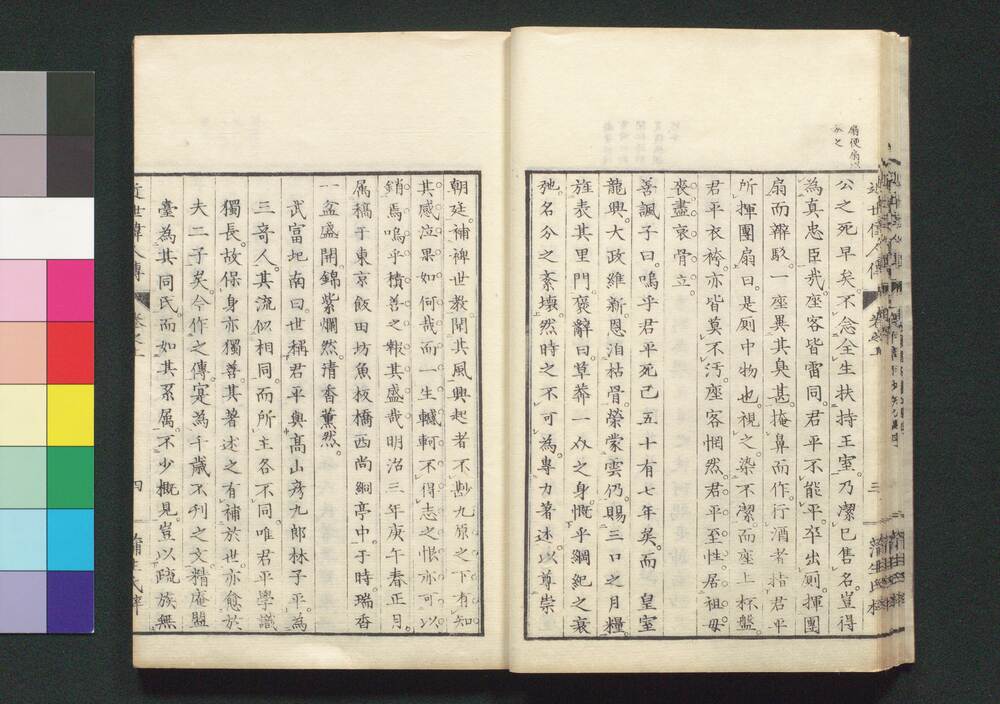 扇便扇以
公之死早矣。不念全生扶持王室。乃潔已售名。豈得
為真忠臣哉。座客皆雷同。君平不能平。卒出厠揮團
扇而辯駁。一座異其臭甚。掩鼻而作。行酒者指君平
所揮團扇曰。是厠中物也。視之染不潔。而座上杯盤。
君平衣袴。亦皆莫不汚。座客惘然。君平至性。居祖母
喪。盡哀骨立。
善諷子曰。嗚乎君平死已五十有七年矣。而 皇室
龍興。大政維新。恩洎枯骨。榮蒙雲仍。賜三口之月糧。
旌表其里門。褒辭曰。草莽一介之身。慨乎綱紀之衰
弛。名分之紊壞。然時之不可為。專力著述。以尊崇
朝廷。補裨世教。聞其風興起者不尠。九原之下。有知
其感泣果如何哉。而一生轗軻不得志之恨。亦可以
銷焉。嗚乎積善之報其盛哉。明治三年庚午春正月。
属稿于東京飯田坊魚板橋西尚絅亭中。于時瑞香
一盆盛開。錦紫爛然。清香薫然。
武富圯南曰。世稱君平與高山彦九郎林子平。為
三奇人。其流似相同。而所主各不同。唯君平學識
獨長。故保身亦獨善。其著述之有補於世。亦愈於
夫二子矣。今作之傳。寔為千歳不刊之文。精庵盟
臺為其同氏。而如其系属。不少概見。豈以疏族無
近世偉人傳
四
蒲生氏梓